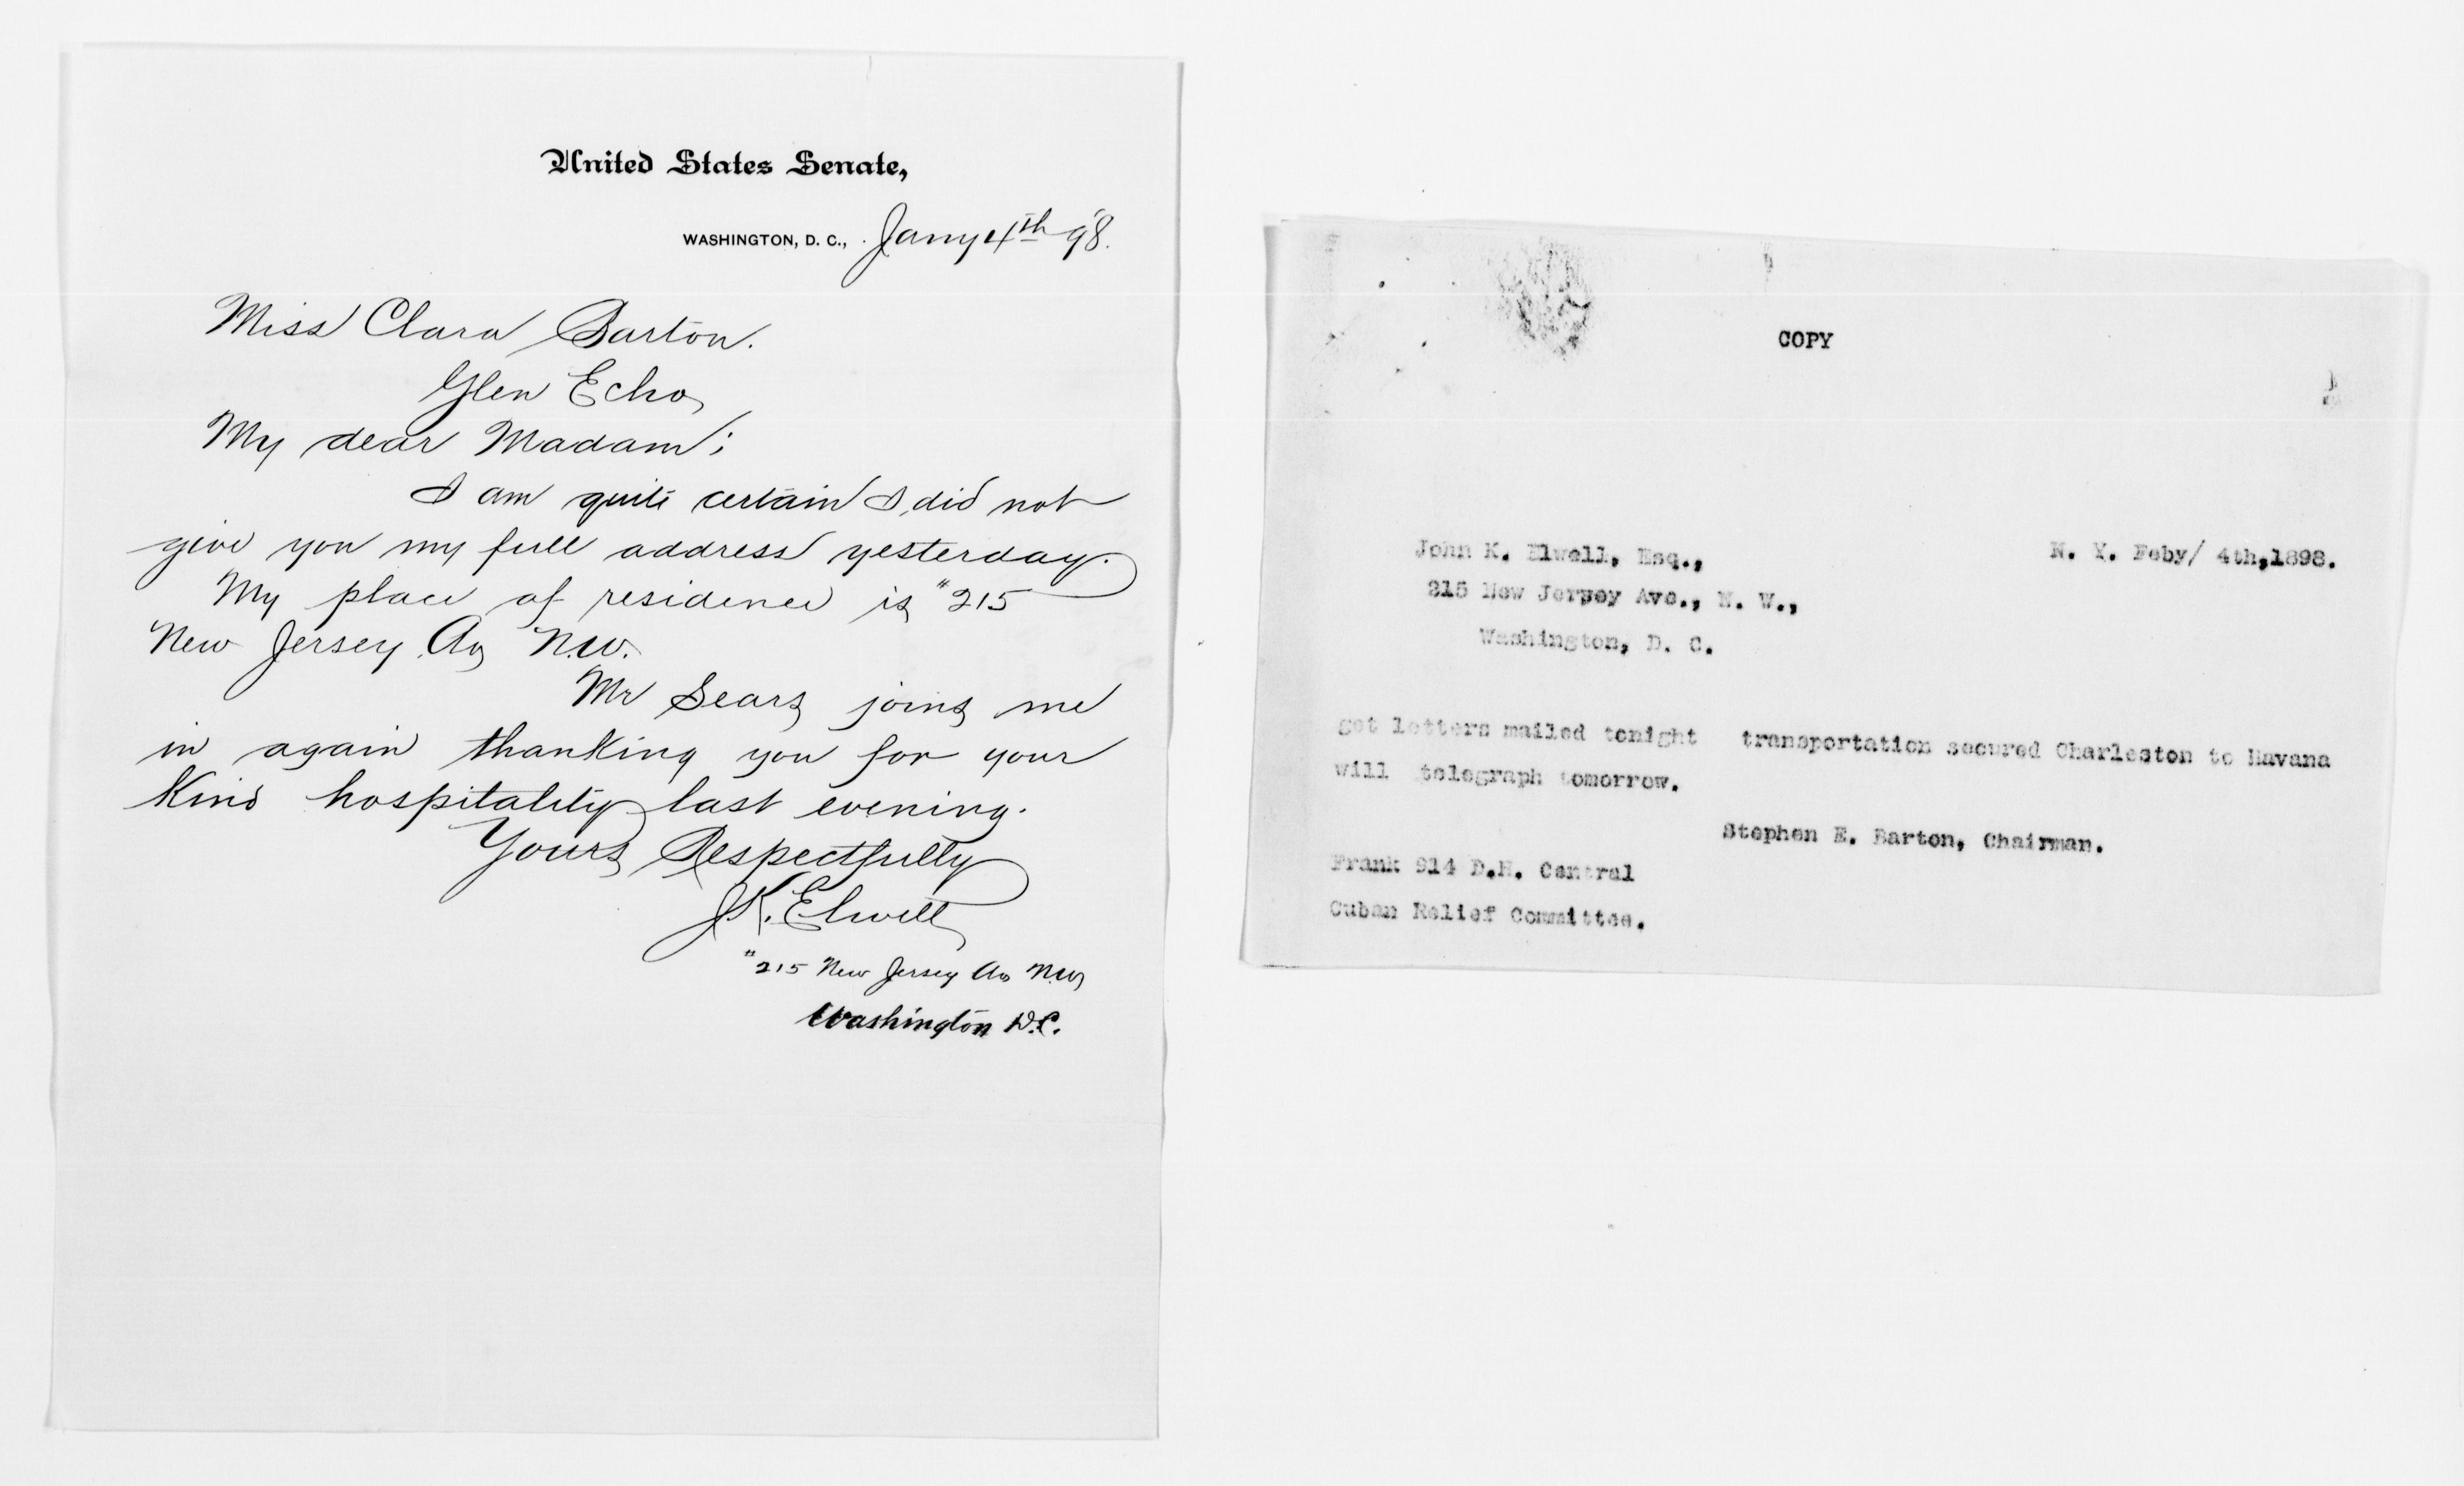 United States Senate,
WASHINGTON, D. C., Jany 4th 98.
Miss Clara Barton.
Glen Echo,
My dear Madam;
I am quite certain I did not
give you my full address yesterday.
My place of residence is "215
New Jersey Av N.W.
Mr Sears joins me
in again thanking you for your
Kind hospitality last evening.
Yours Respectfully
J.K. Elwell
"215 New Jersey Av N.W,
Washington D.C.
COPY
John K. Elwell, Esq.,
N. Y. Feby/ 4th,1898.
215 New Jersey Ave., N. W.,
Washington, D. C.
got letters mailed tonight transportation secured Charleston to Havana
will telegraph tomorrow.
Stephen E. Barton, Chairman.
Frank 914 D.H. Central
Cuban Relief Committee.